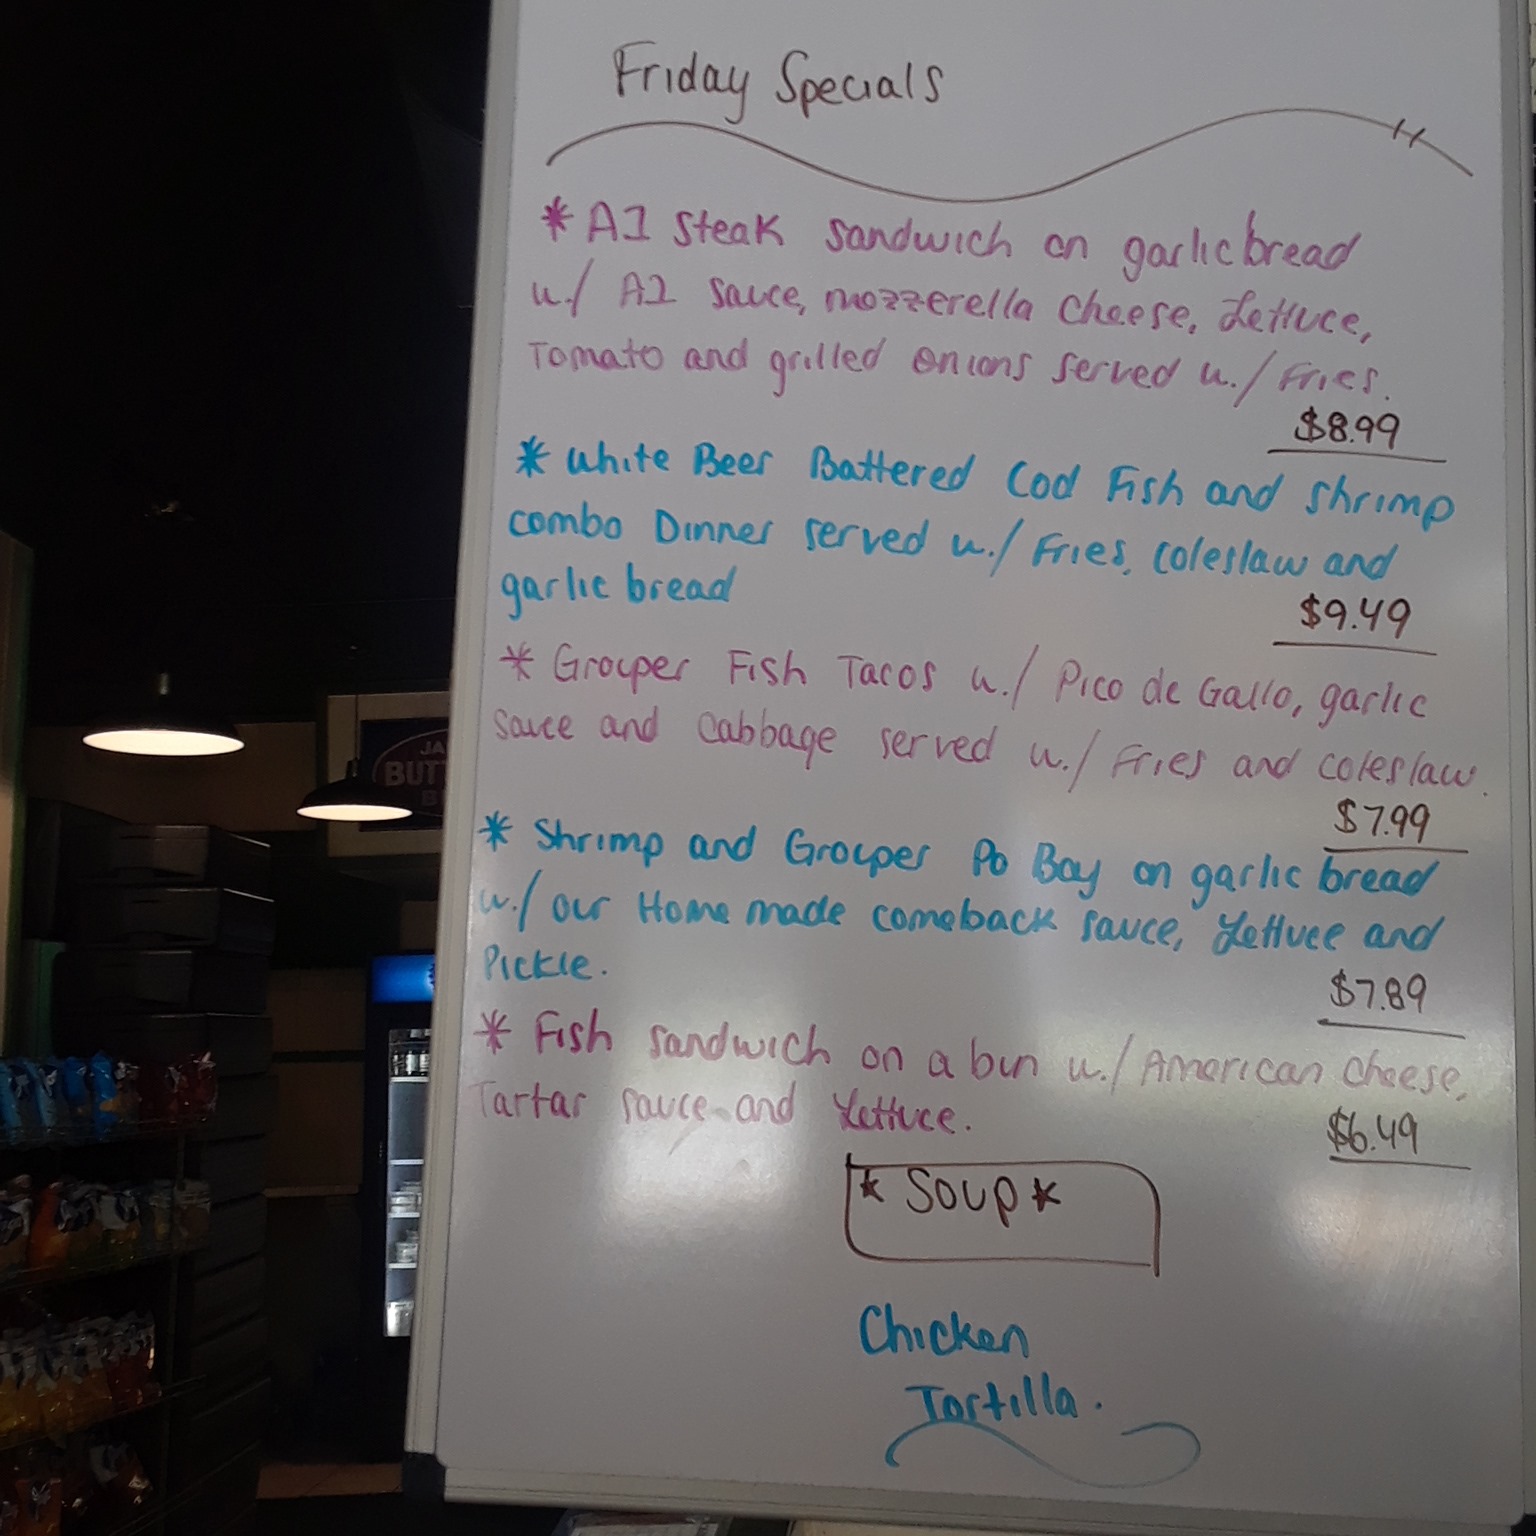 Friday Specials
* A1 Steak sandwich on garlic bread
w./ A1 sauce, mozzerella cheese, Lettuce,
Tomato and grilled onions served w./ Fries.
$8.99
* White Beer Battered Cod Fish and shrimp
combo Dinner served w./ Fries, coleslaw and
garlic bread
$9.49
* Grouper Fish Tacos w./ Pico de Gallo, garlic
sauce and cabbage served w./ Fries and coleslaw.
$7.99
* Shrimp and Grouper Po Boy on garlic bread
w./ our Home made comeback sauce, Lettuce and
Pickle.
$7.89
* Fish sandwich on a bun w./ American cheese,
Tartar sauce and Lettuce.
$6.49
* Soup *
Chicken
Tortilla.
JA
BUT